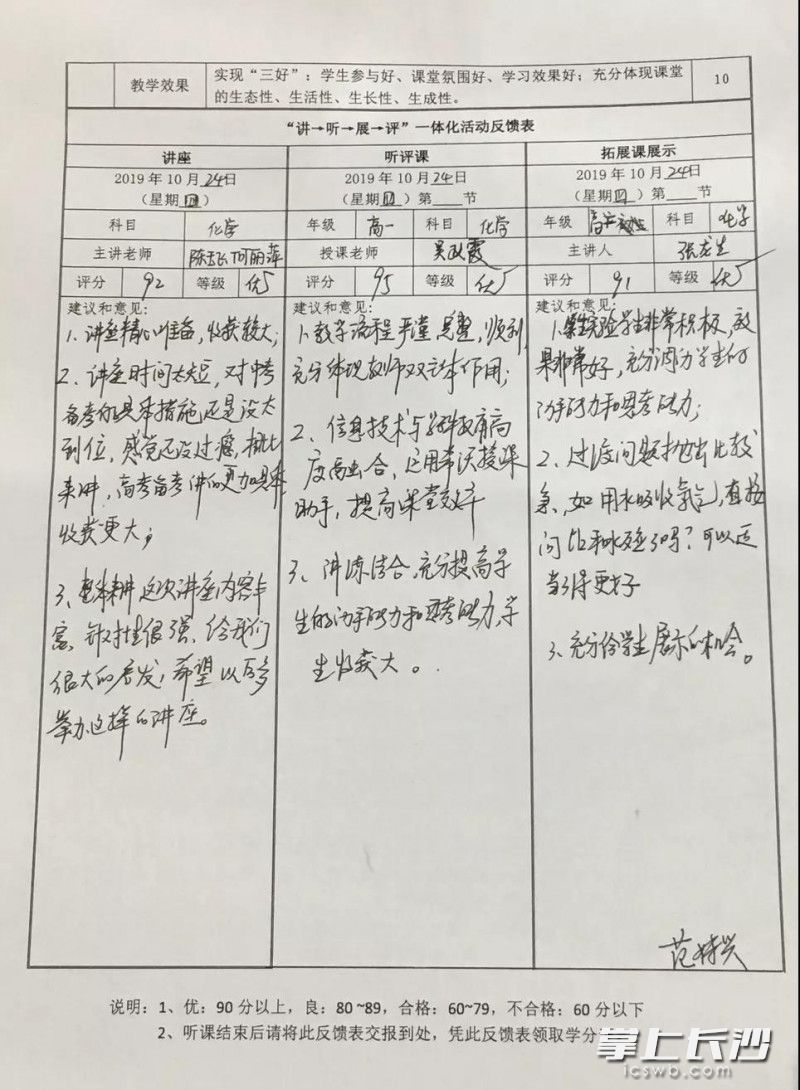 教学效果
实现“三好”：学生参与好、课堂氛围好、学习效果好；充分体现课堂
的生态性、生活性、生长性、生成性。
10
“讲→听→展→评”一体化活动反馈表
讲座
2019 年 10 月 24 日
（星期 四）
科目 化学
主讲老师 陈飞 何丽萍
评分 92 等级 优
建议和意见:
1、讲座精心准备，收获较大；
2、讲座时间太短，对中考
备考的具体措施还是没太
到位，感觉还没过瘾，相比
来讲，高考备考讲的更加具体
收获更大；
3、整体来讲这次讲座内容丰
富、针对性很强、给我们
很大的启发，希望以后多
举办这样的讲座。
听评课
2019 年 10 月 24 日
（星期 四）第 节
年级 高一 科目 化学
授课老师 吴 霞
评分 95 等级 优
建议和意见:
1、教学流程严谨，思路，顺利，
充分体现教师双主体作用；
2、信息技术与学科教育高
度融合，运用希沃授课
助手，提高课堂效率
3、讲练结合，充分提高学
生的动手能力和思考能力，学
生收获大。
拓展课展示
2019 年 10 月 24 日
（星期 四）第 节
年级 科目 化学
主讲人 张龙生
评分 91 等级 优
建议和意见:
1、实验学生非常积极，效
果非常好，充分调动学生的
动手能力和思考能力；
2、过渡问题抛出比较
急、如用水吸收氯气，直接
问 和水 了吗？可以适
当 得更好
3、充分给学生展示的机会。
范 兴
说明：1、优：90 分以上，良：80 ~89，合格：60~79，不合格：60 分以下
2、听课结束后请将此反馈表交报到处，凭此反馈表领取学分
掌上长沙
icswb.com